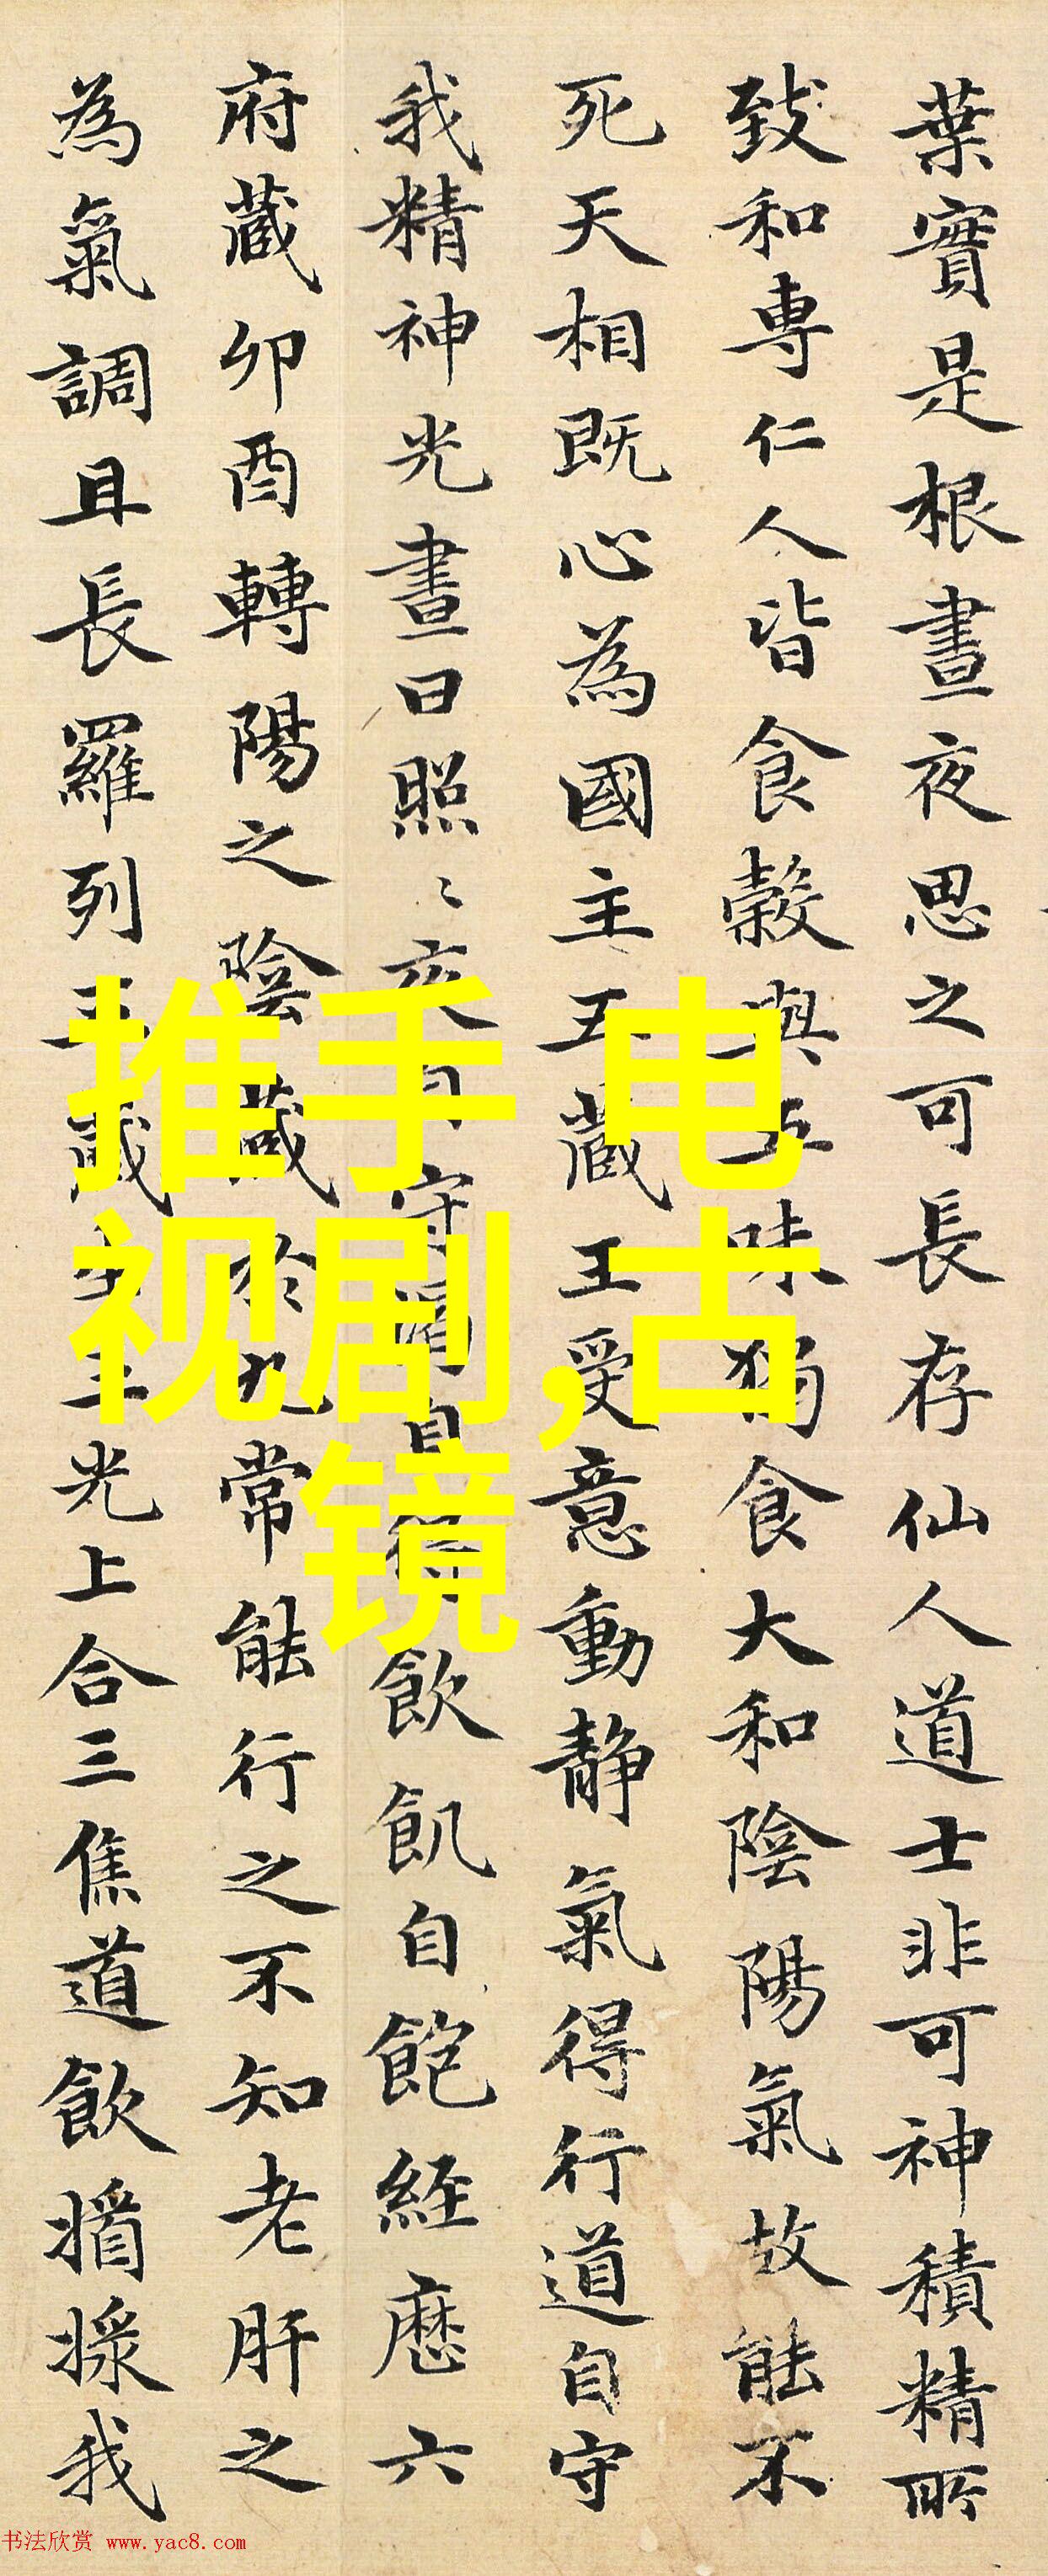 葉實是根晝夜思之可長存仙人道士非可神積精所
致和專仁人皆食穀與五味獨食大和陰陽氣故能不
死天相既心為國主五藏王受意動靜氣得行道自守
我精神光晝日照〻夜自守渴自得飲飢自飽經歷六
府藏卯酉轉陽之陰藏於九常能行之不知老肝之
為氣調且長羅列五藏生三光上合三焦道飲㨶採我
推手 电
视剧,古
镜
书法欣赏 www.yac8.com